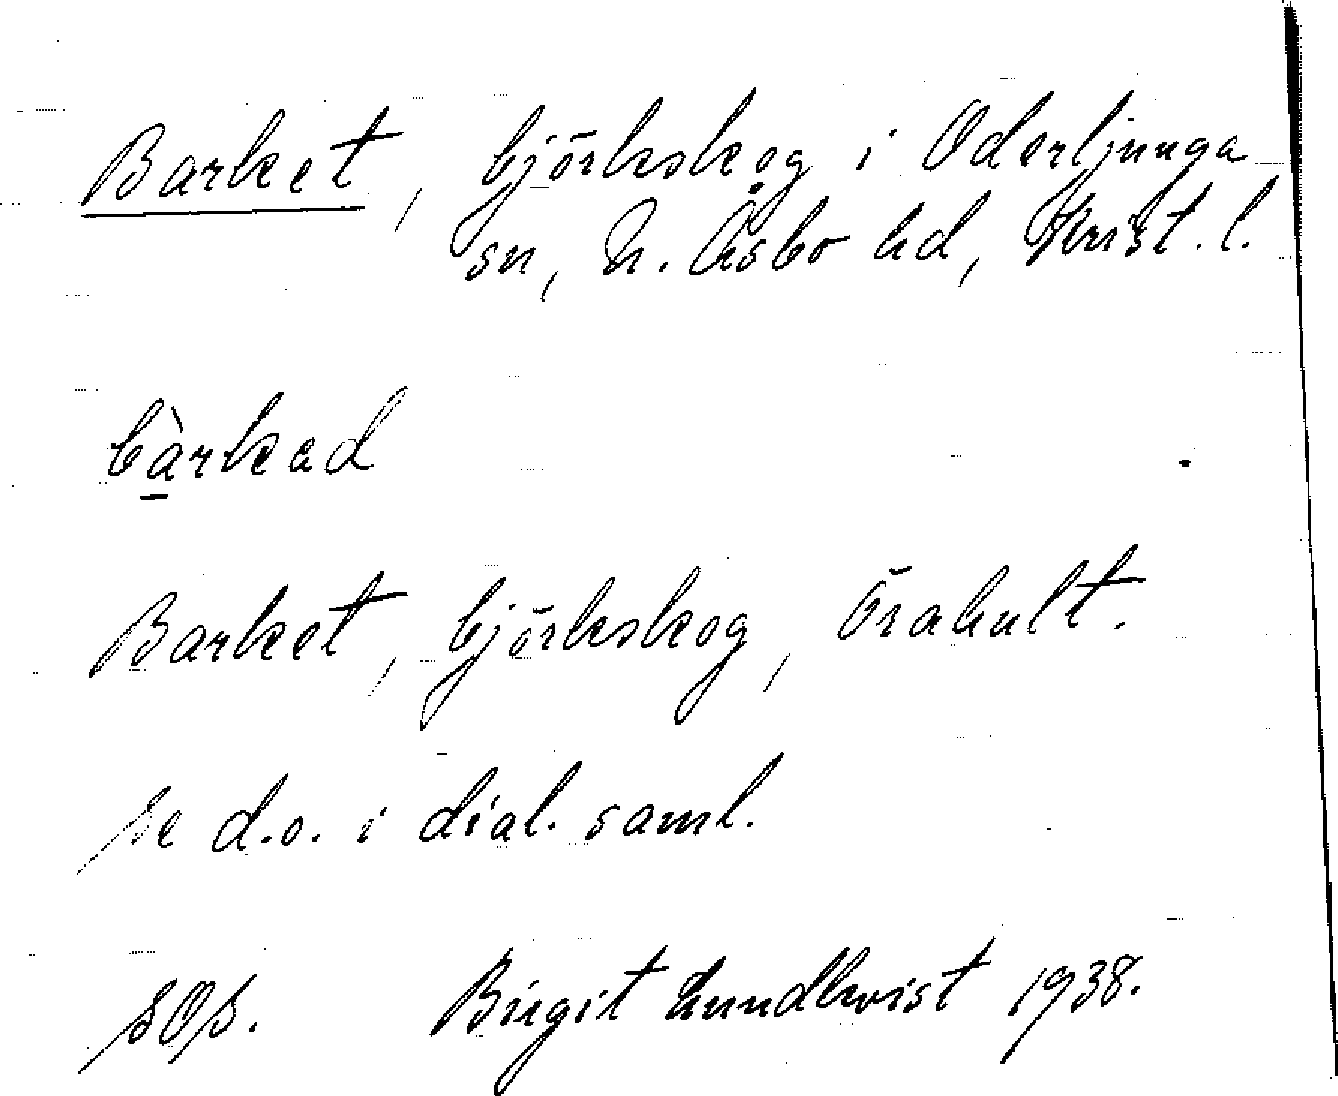 Barket, björkskog i Oderljunga
sn, N. Åsbo hd, Krist. l.
bàrkad
Barket, björkskog, Örahult.
Se d.o. i dial. saml.
SOS. Birgit Lundkvist 1938.